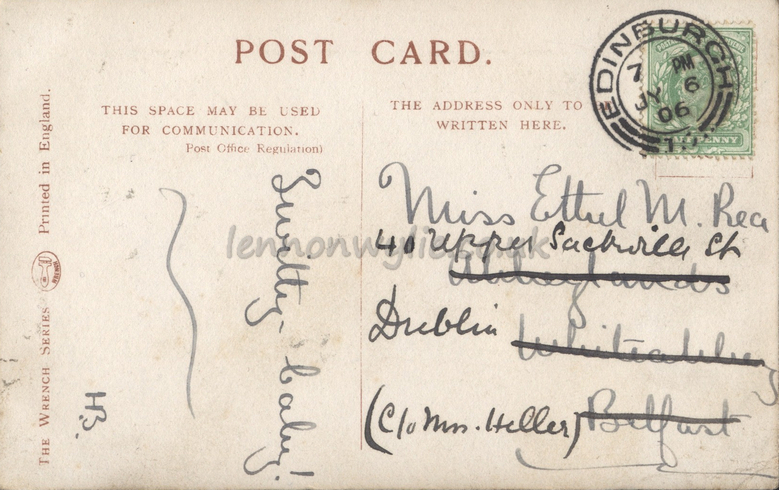 POST CARD.
THIS SPACE MAY BE USED
FOR COMMUNICATION.
Post Office Regulation)
THE ADDRESS ONLY TO
WRITTEN HERE.
EDINBURGH
7 PM
JY 6
06
PENNY
THE WRENCH SERIES
Printed in England.
H.B.
baby!
Miss Ethel M. Rea
40 Upper Sackville St
Abbeylands
Dublin
Whiteabbey
(C/o Mrs. Heller)
Belfast
lennonwylie.co.uk